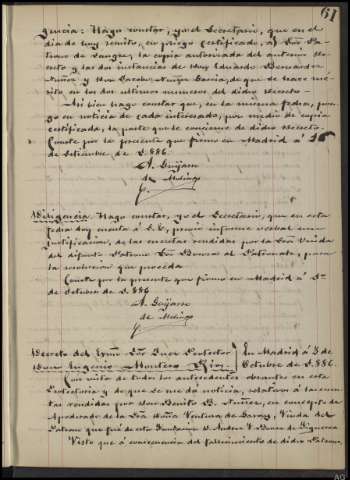 61
gencia: Hago constar, yo el Secretario, que en el
dia de hoy remito, en pliego certificado, a Don
la copia autorizada del anterior
y las dos instancias de Don Eduardo Bernardez
Nuñez y Don Jacobo Nuñez Garcia, de que se hace mé-
rito en los dos ultimos numeros del dicho Decreto
Asi bien hago constar que, en la misma fecha, pon-
go en noticia de cada interesado, por medio de copia
certificada, la parte que le concierne de dicho Decreto.
Conste por la presente que firmo en Madrid á
de Setiembre de 1.886.
A. Guijarro
de Molina
Diligencia. Hago constar, yo el Secretario, que en esta
fecha doy cuenta á S.E., previo informe verbal
justificacion, de las cuentas rendidas por la Sra Viuda
del difunto Patrono al Patronato, para
la resolucion que proceda.
Conste por la presente que firmo en Madrid á
de Octubre de 1.886
A. Guijarro
de Molina
Decreto del Excmo Sor Juez Protector
Don Eugenio Montero Rios.
En Madrid á 3 de
Octubre de 1.886.
Con vista de todos los antecedentes obrantes en esta
Protectoria y de que se me dá noticia, relativos á las cuen-
tas rendidas por Don Benito B. Nuñez, en concepto de
Apoderado de la Sra Doña Ventura de Garay, Viuda del
Patrono que fué de esta Fundacion D. Andres V. Bonce de Figueroa
Visto que á consecuencia del fallecimiento de dicho Patrono,